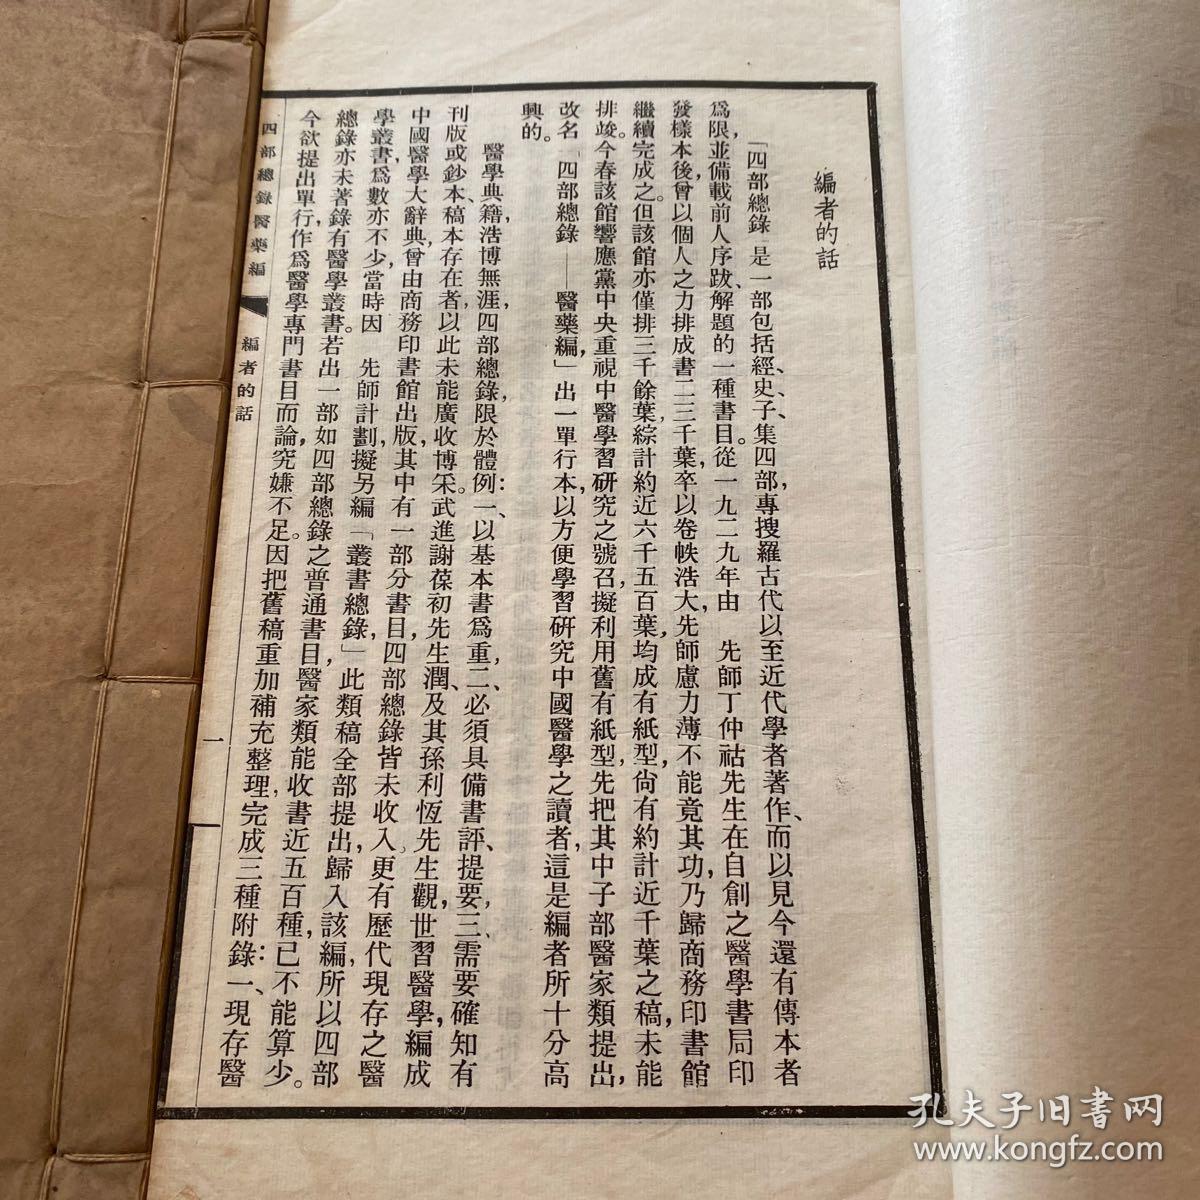 編者的話
「四部總錄」是一部包括經、史、子、集四部，專搜羅古代以至近代學者著作、而以見今還有傳本者
爲限，並備載前人序跋、解題的一種書目。從一九二九年由　先師丁仲祜先生在自創之醫學書局印
發樣本後，曾以個人之力排成書二三千葉，卒以卷帙浩大，先師慮力薄不能竟其功，乃歸商務印書館
繼續完成之。但該館亦僅排三千餘葉，綜計約近六千五百葉，均成有紙型，尙有約計近千葉之稿，未能
排竣。今春該館響應黨中央重視中醫學習研究之號召，擬利用舊有紙型，先把其中子部醫家類提出，
改名「四部總錄——醫藥編」出一單行本，以方便學習研究中國醫學之讀者，這是編者所十分高
興的。
醫學典籍，浩博無涯，四部總錄，限於體例：一、以基本書爲重，二、必須具備書評、提要，三、需要確知有
刊版或鈔本、稿本存在者，以此未能廣收博采。武進謝葆初先生潤、及其孫利恆先生觀，世習醫學，編成
中國醫學大辭典，曾由商務印書館出版，其中有一部分書目，四部總錄皆未收入。更有歷代現存之醫
學叢書，爲數亦不少，當時因　先師計劃，擬另編「叢書總錄」，此類稿全部提出，歸入該編，所以四部
總錄亦未著錄有醫學叢書。若出一部如四部總錄之普通書目，醫家類能收書近五百種，已不能算少。
今欲提出單行，作爲醫學專門書目而論，究嫌不足。因把舊稿重加補充整理，完成三種附錄：一、現存醫
四部總錄醫藥編
編者的話
一
孔夫子旧书网
www.kongfz.com